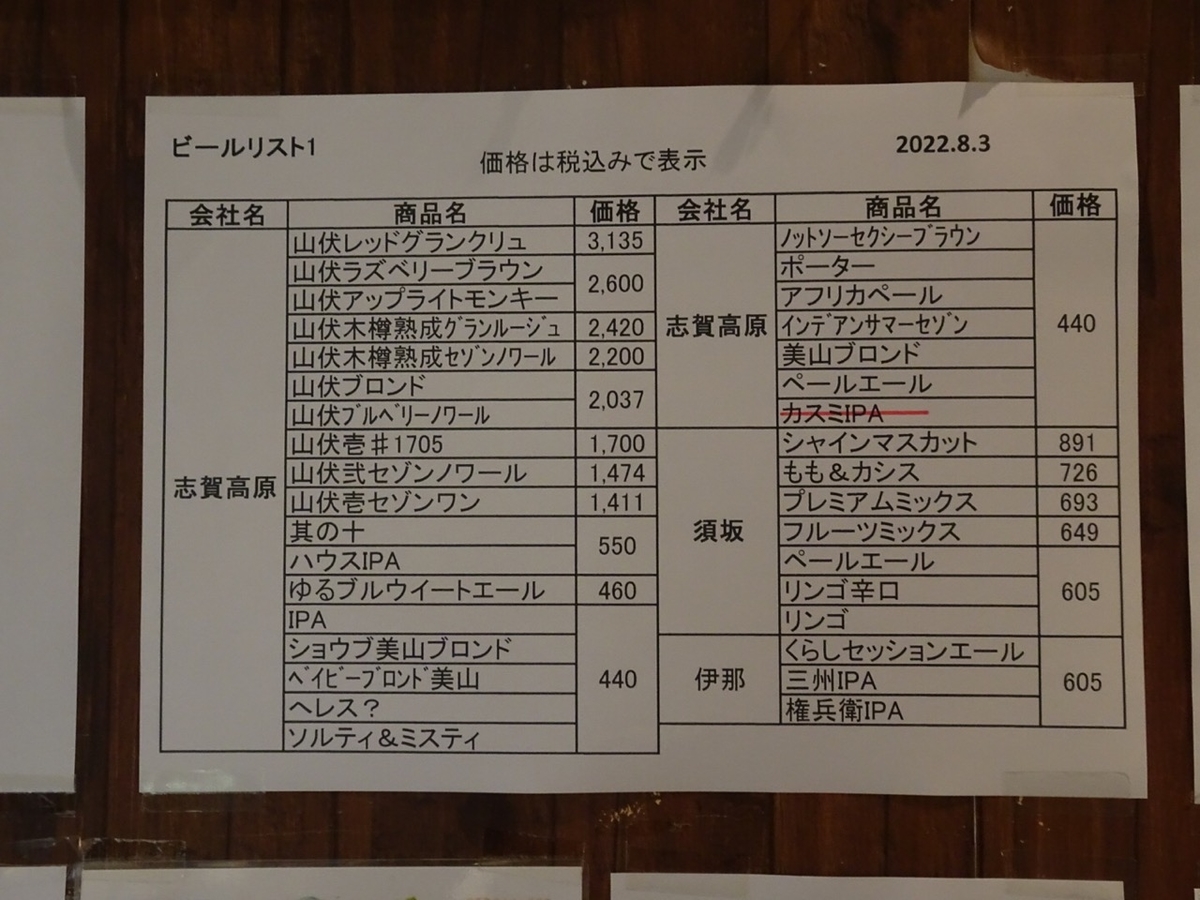 ビールリスト1
価格は税込みで表示
2022.8.3
会社名 商品名 価格
志賀高原
山伏レッドグランクリュ 3,135
山伏ラズベリーブラウン
山伏アップライトモンキー
2,600
山伏木樽熟成グランルージュ 2,420
山伏木樽熟成セゾンノワール 2,200
山伏ブロンド
山伏ブルベリーノワール
2,037
山伏壱♯1705 1,700
山伏弐セゾンノワール 1,474
山伏壱セゾンワン 1,411
其の十
ハウスIPA
550
ゆるブルウイートエール 460
IPA
ショウブ美山ブロンド
ベイビーブロンド美山
ヘレス？
ソルティ＆ミスティ
440
会社名 商品名 価格
志賀高原
ノットソーセクシーブラウン
ポーター
アフリカペール
インデアンサマーセゾン
美山ブロンド
ペールエール
カスミIPA
440
須坂
シャインマスカット 891
もも＆カシス 726
プレミアムミックス 693
フルーツミックス 649
ペールエール
リンゴ辛口
リンゴ
605
伊那
くらしセッションエール
三州IPA
権兵衛IPA
605